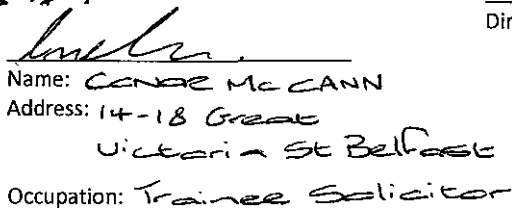 Dir
Name: CONOR McCANN
Address: 14-18 Great
Victoria St Belfast
Occupation: Trainee Solicitor